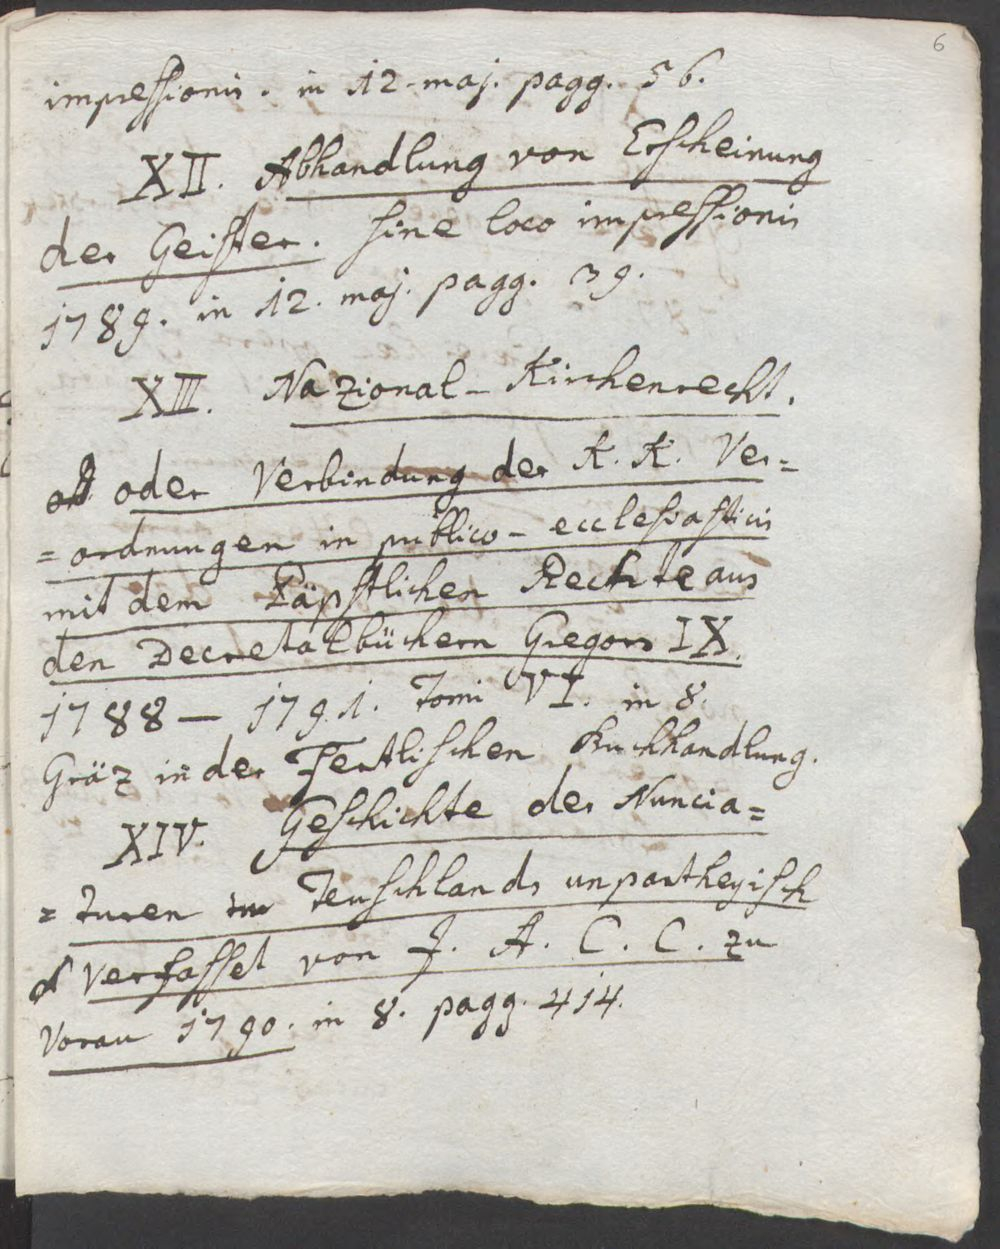 6
impressionis. in 12. maj. pagg. 56.
XII. Abhandlung von Erscheinung
der Geister. sine loco impressionis
1789. in 12. maj. pagg. 39.
XIII. Nazional-Kirchenrecht.
oder Verbindung der K. K. Ver=
=ordnungen in publico-ecclesiasticis
mit dem Päpstlichen Rechte aus
den Decretalbüchern Gregors IX.
1788 — 1791. Tomi VI. in 8.
Gräz in der Ferstlischen Buchhandlung.
XIV. Geschichte der Nuncia=
=turen Teuschlands unpartheyisch
verfasset von J. A. C. C. zu
Vorau 1790. in 8. pagg. 414.